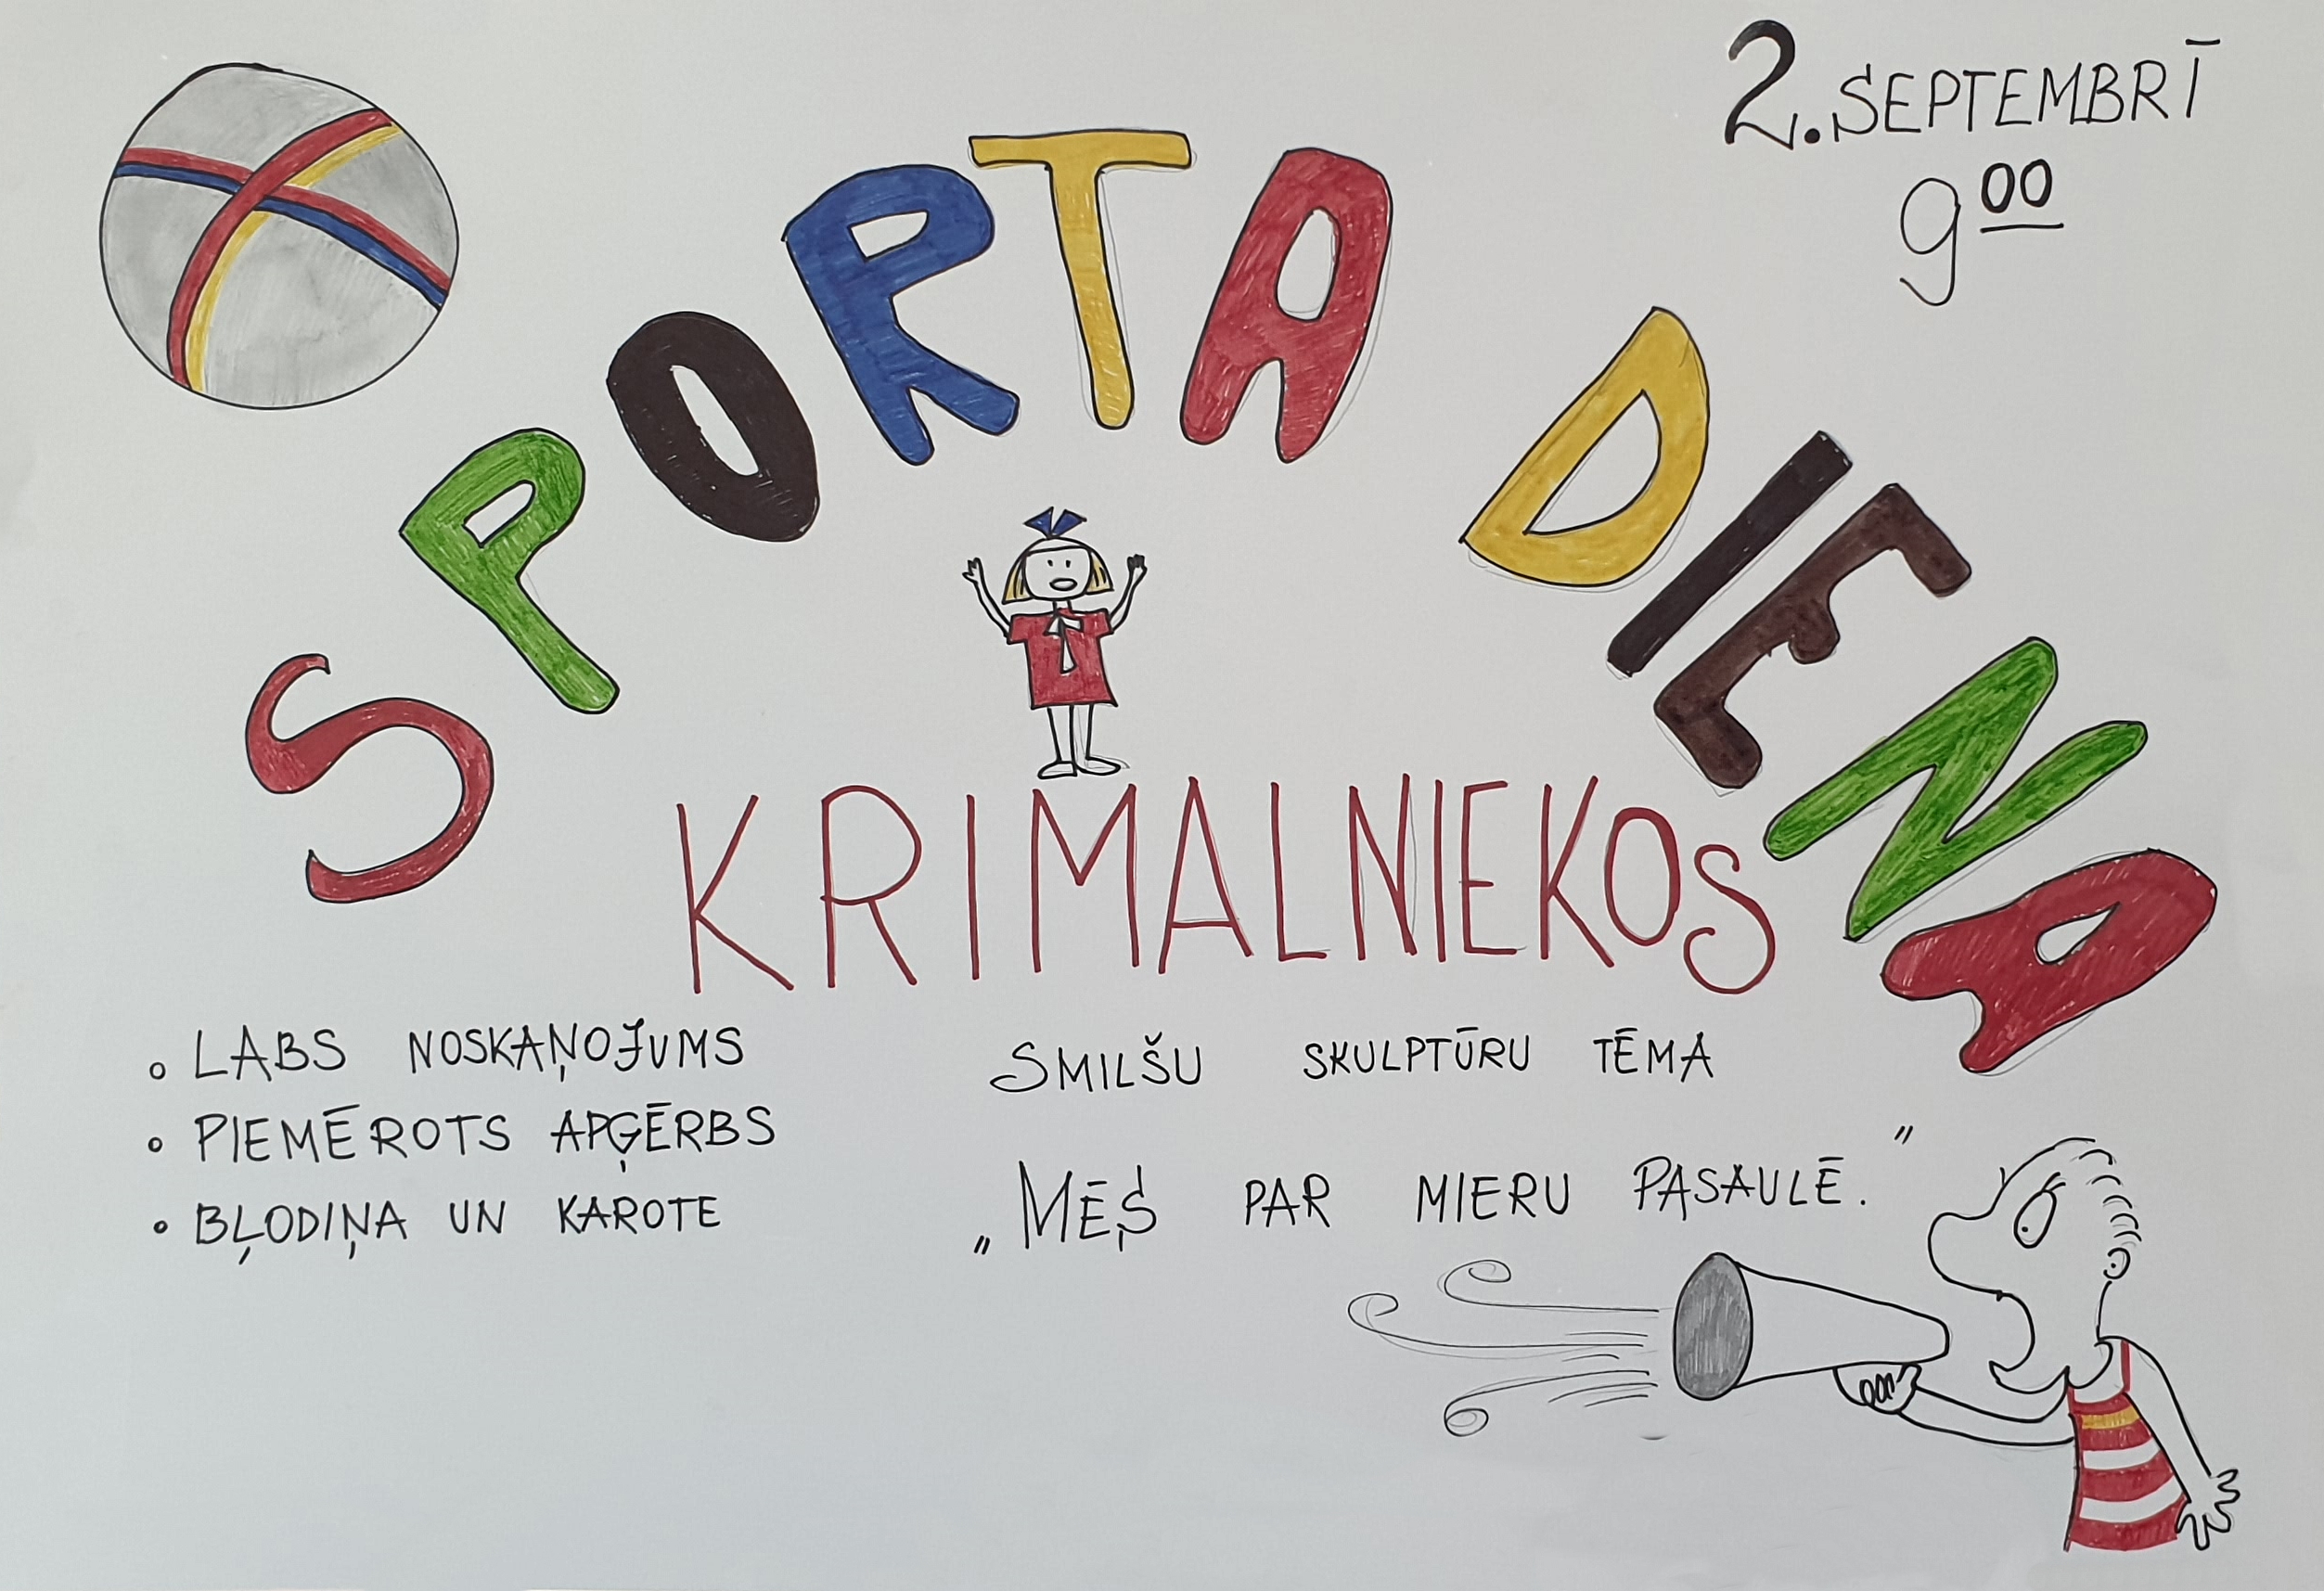 2. SEPTEMBRĪ
9 00
SPORTA DIENA
KRIMALNIEKOS
LABS NOSKAŅOJUMS
PIEMĒROTS APĢĒRBS
BĻODIŅA UN KAROTE
SMILŠU SKULPTŪRU TĒMA
„MĒS PAR MIERU PASAULĒ."